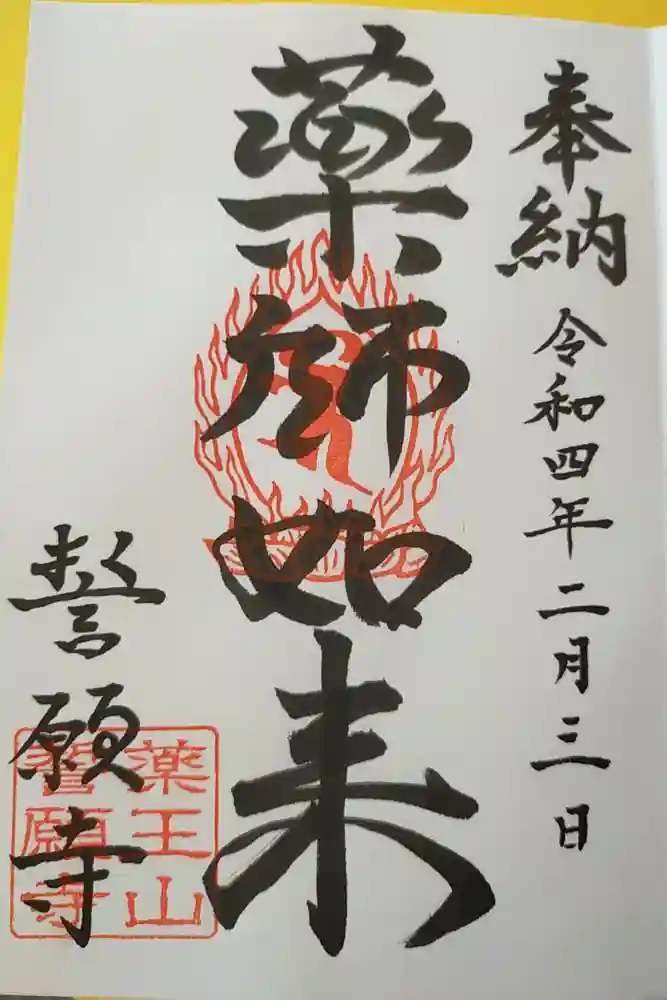 奉納 令和四年二月三日
薬師如来
誓願寺
薬王山
誓願寺